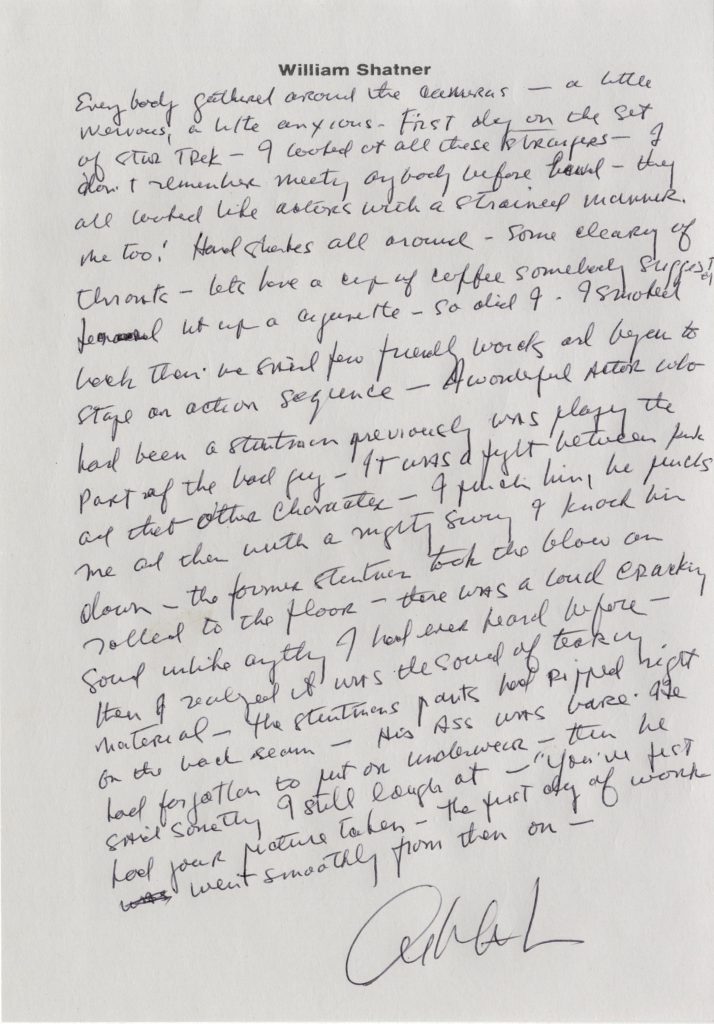 William Shatner
Everybody gathered around the cameras — a little
nervous, a little anxious - First day on the set
of STAR TREK — I looked at all these strangers — I
don't remember meeting anybody before — they
all looked like actors with a strained manner.
me too! Handshakes all around - Some clearing of
throats — lets have a cup of coffee somebody suggested
lit up a cigarette — so did I - I smoked
back then. We said few friendly words and began to
stage an action sequence — A wonderful Actor who
had been a stuntman previously was playing the
part of the bad guy — It was a fight between
and that other character — I punch him, he punches
me and then with a mighty swing I knock him
down — the former stuntman took the blow an
rolled to the floor — there was a loud cracking
sound unlike anything I had ever heard before —
then I realized it was the sound of tearing
material — the stuntmans pants had ripped right
on the back seam — His Ass was bare. He
had forgotten to put on underwear — then he
said something I still laugh at — "You've just
had your picture taken — the first day of work
was went smoothly from then on —